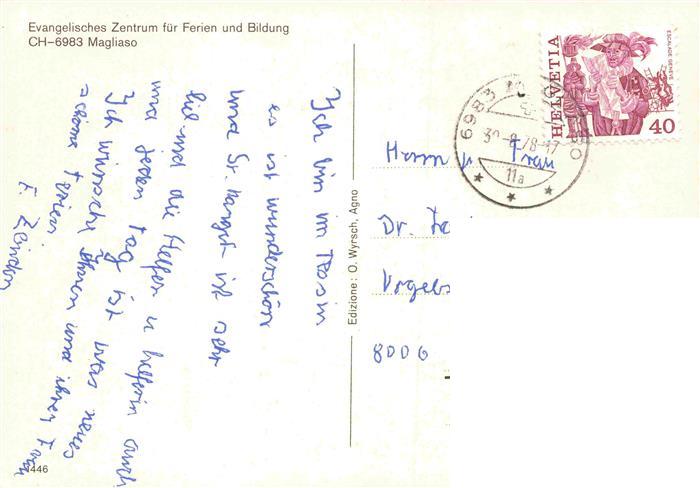 Evangelisches Zentrum für Ferien und Bildung
CH-6983 Magliaso
Ich bin im Tessin
es ist wunderschön
und Sr. Margrit ist sehr
lieb und die Helfer u helferin auch
und jeden Tag ist was neues
Ich wünsche Ihnen und ihrer Frau
schöne Ferien
F. Zbinden
Edizione: O. Wyrsch, Agno
HELVETIA
ESCALADE GENÈVE
40
6983
30-8.78-17
11a
Herrn u. Frau
Dr.
8006
1446